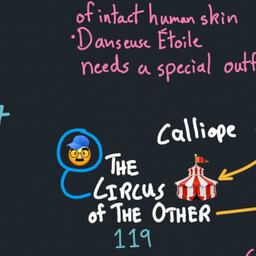 of intact human skin
• Danseuse Étoile
needs a special outf
Calliope
THE
CIRCUS
of THE OTHER
119